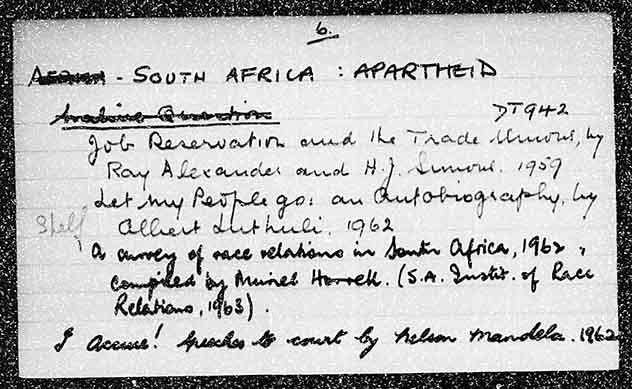 6.
AFRICA - SOUTH AFRICA : APARTHEID
Native Question
DT942
Job Reservation and the Trade Unions, by
Ray Alexander and H.J. Simons. 1959
Let my People go: an Autobiography, by
Shelf
Albert Luthuli, 1962
A survey of race relations in South Africa, 1962,
compiled by Muriel Horrell. (S.A. Instit. of Race
Relations, 1963).
I Accuse! Speeches to court by Nelson Mandela. 1962